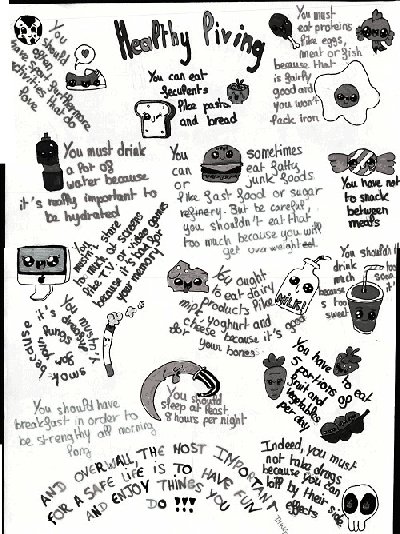 Healthy Living
You should
often
have sport furthermore
activities that do
love
You can eat
feculents
like pasta
and bread
You must
eat proteins
like eggs,
meat or fish
because that
is fairly
good and
you won't
lack iron
You must drink
a lot of
water because
it's really important to
be hydrated
You sometimes
can eat fatty
or junk foods
like fast food or sugar
refinery. But be careful,
you shouldn't eat that
too much because you will
get overweight.
You have not
to snack
between
meals
You mustn't stare
to much screens
like TV or video games
because it's bad for
your memory
You ought
to eat dairy
products like
milk, yoghurt and
cheese because it's good
for your bones
MILK
You shouldn't
drink too
much soda
because it
s too
sweet
You mustn't
smoke
because it's
dreasy
for your lungs
You should
sleep at least
8 hours per night
You have to eat
5 portions of
fruit and
vegetables
per day
You should have
breakfast in order to
be strengthy all morning
long
AND OVERWALL, THE MOST IMPORTANT
FOR A SAFE LIFE IS TO HAVE FUN
AND ENJOY THINGS YOU
DO !!!
Indeed, you must
not take drugs
because you can
kill by their side
effects